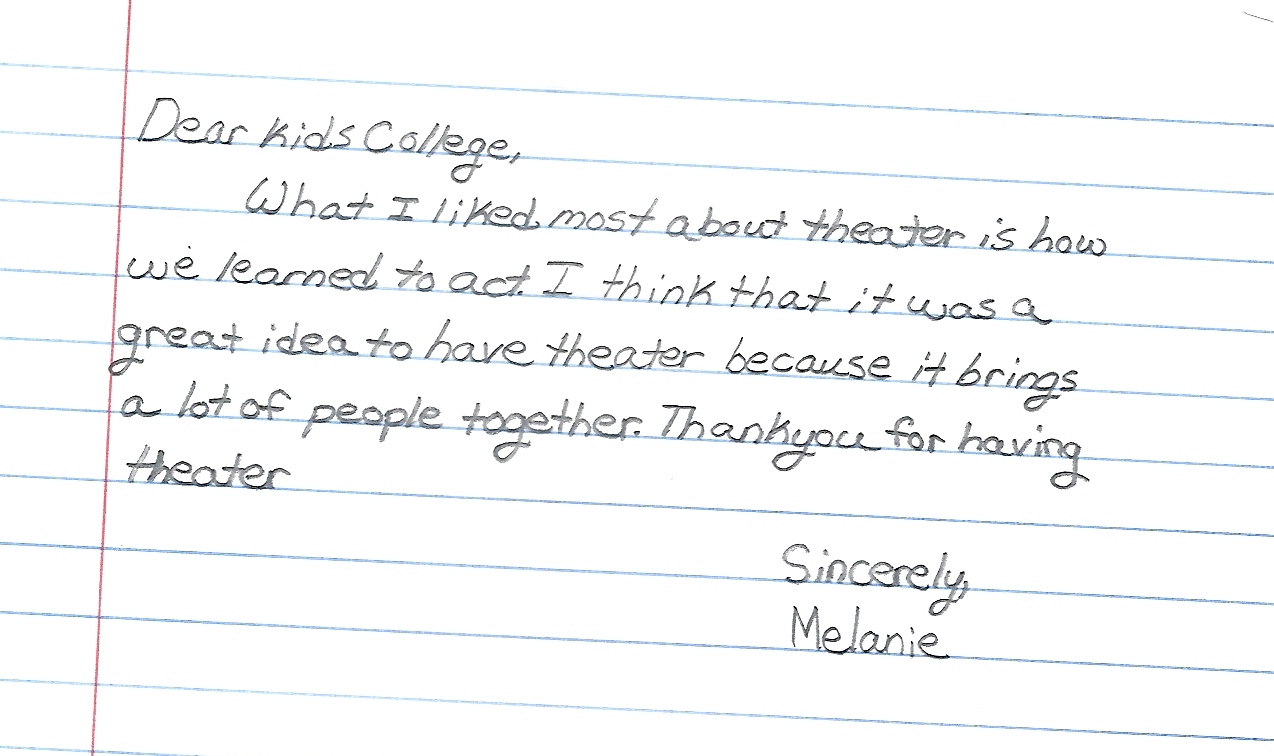 Dear Kids College,
What I liked most about theater is how
we learned to act. I think that it was a
great idea to have theater because it brings
a lot of people together. Thankyou for having
theater
Sincerely,
Melanie